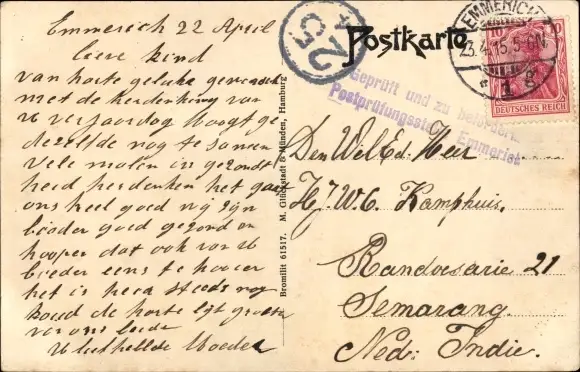 Emmerich 22 April
lieve kind
van harte geluk gewenscht
met de herdenking van
U verjaardag Moogt ge
dezelfde nog te samen
vele malen in gezondt
heid herdenken het gaat
ons heel goed wij zijn
goed gezond en
hoopen dat ook van U
eens te hooren
het is hier steeds nog
koud de harte
van ons beide
U liefhebbende Moeder
Bromilit 61517. M. Glückstadt & Münden, Hamburg
25
Postkarte
EMMERICH
23.4.15.5-6N.
* 1 g
10
10
DEUTSCHES REICH
Geprüft und zu befördern
Postprüfungsstelle Emmerich
Den WelEd. Heer
H.J.W.C. Kamphuis.
Randoesarie 21
Semarang.
Ned: Indie.